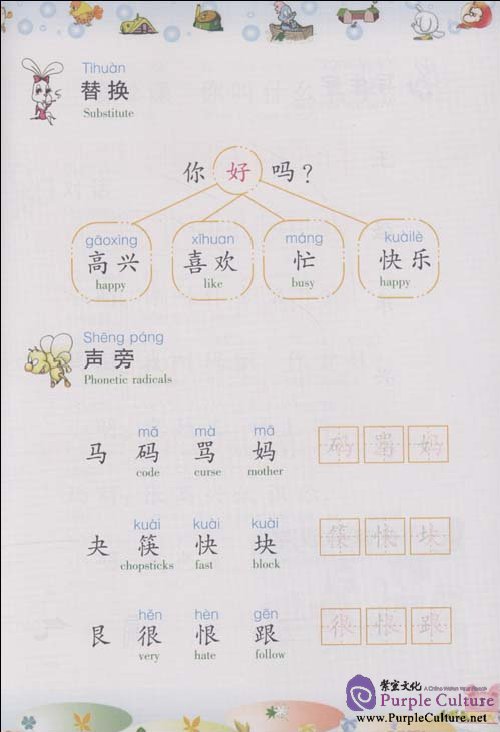 Tìhuàn
替换
Substitute
你 好 吗？
gāoxìng xǐhuan máng kuàilè
高兴 喜欢 忙 快乐
happy like busy happy
Shēng páng
声旁
Phonetic radicals
mǎ mà mā
马 码 骂 妈 码 骂 妈
code curse mother
kuài kuài kuài
夬 筷 快 块 筷 快 块
chopsticks fast block
hěn hèn gēn
艮 很 恨 跟 很 恨 跟
very hate follow
紫宝文化
Purple Culture
www.PurpleCulture.net